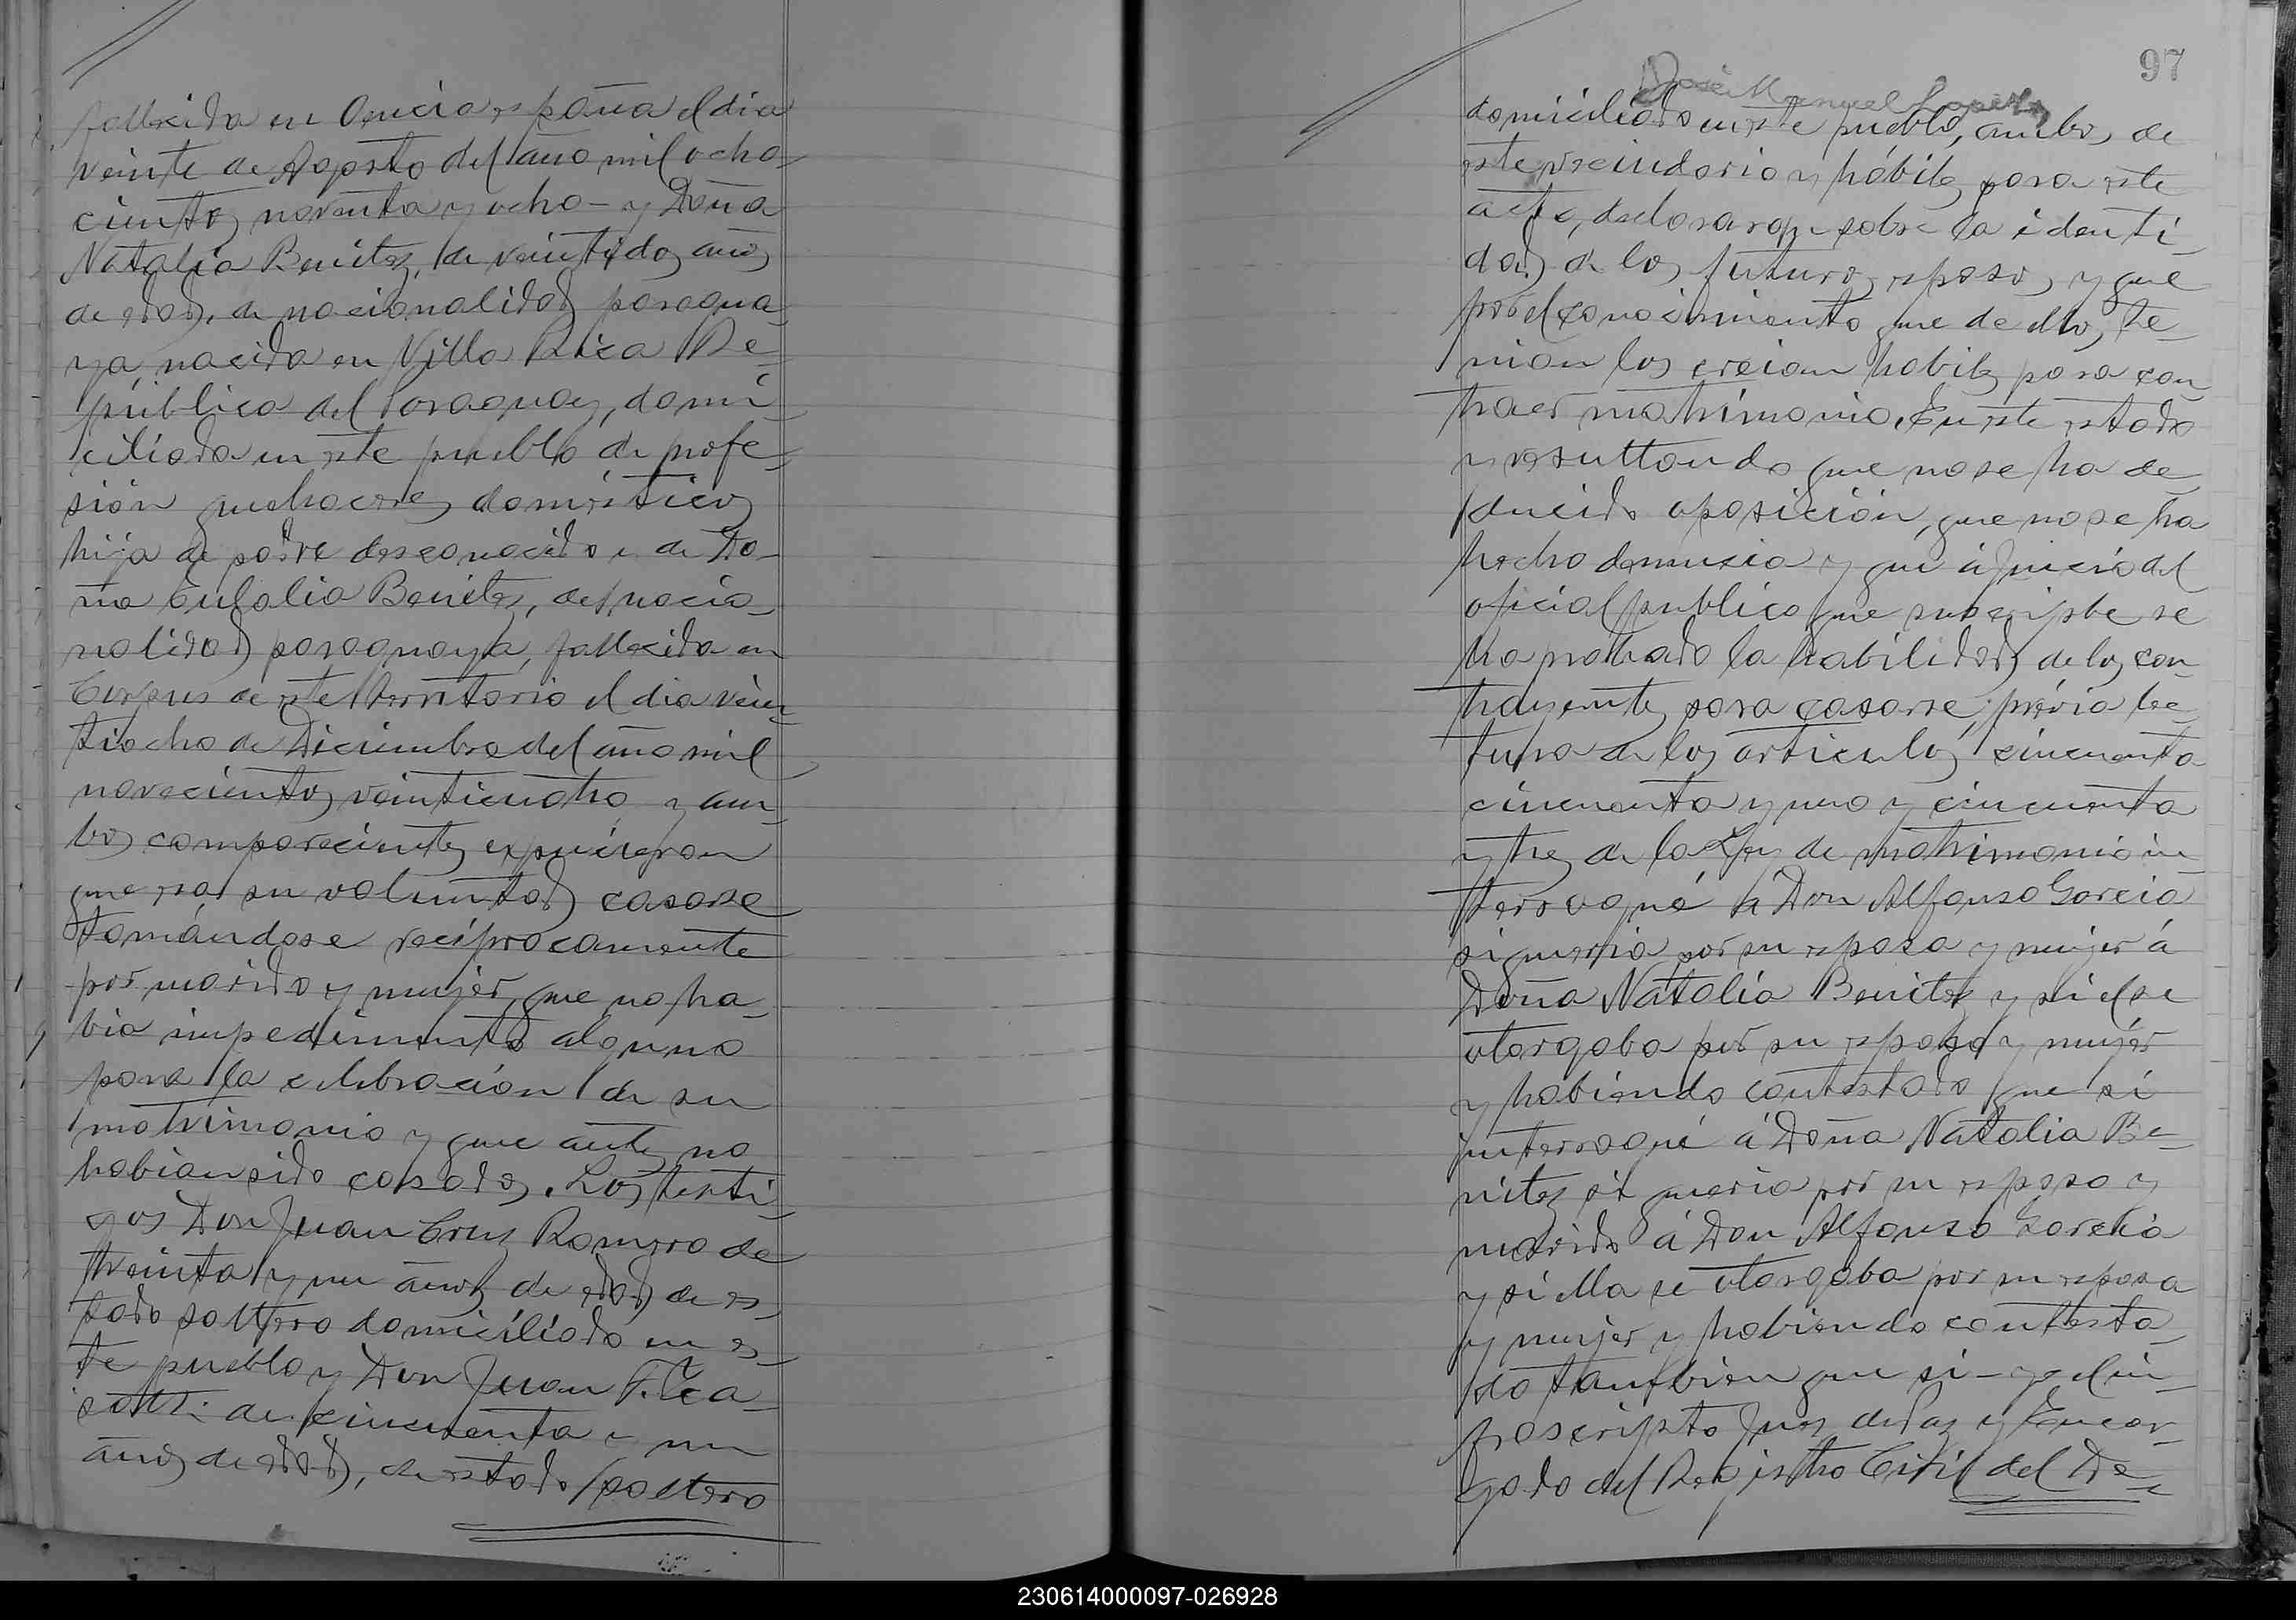 fallecida en Oencia españa el dia
veinte de Agosto del año mil ocho-
cientos noventa y ocho - y Doña
Natalia Benitez, de veintidos años
de edad, de nacionalidad paragua-
ya nacida en Villa Rica Re-
pública del Paraguay, domi-
ciliada en este pueblo de profe-
sión quehaceres domésticos
hija de padre desconocido y de Do-
ña Eulalia Benitez, de nacio-
nalidad paraguaya, fallecida en
Corpus de este territorio el dia vein-
tiocho de Diciembre del año mil
novecientos veinticuatro y am-
bos comparecientes expusieron
que era su voluntad casarse
tomándose recíprocamente
por marido y mujer, que no ha-
bia impedimento alguno
para la celebración de su
matrimonio y que antes no
habian sido casados. Los testi-
gos Don Juan Cruz Romero de
treinta y un años de edad de es-
tado soltero domiciliado en es-
te pueblo y Don Juan
de cincuenta y un
años de edad, de estado soltero
97
José Manuel Lopez
domiciliado en este pueblo, ambos de
este vecindario y hábiles para este
acto, declararon sobre la identi-
dad de los futuros esposos y que
por el conocimiento que de ellos te-
nian los creian habiles para con-
traer matrimonio. En este estado
y resultando que no se ha de-
ducido oposición, que no se ha
hecho denuncia y que á juicio del
oficial publico que suscripbe se
ha probado la habilidad de los con-
trayentes para casarse, prévia lec-
tura de los articulos cincuenta
cincuenta y uno y cincuenta
y tres de la Ley de matrimonio in-
terrogué á Don Alfonso Garcia
si queria por su esposa y mujer á
Doña Natalia Benitez y si el se
otorgaba por su esposo y mujer
y habiendo contestado que si
interrogué á Doña Natalia Be-
nitez si queria por su esposo y
marido á Don Alfonso Garcia
y si ella se otorgaba por su esposa
y mujer y habiendo contesta-
do tambien que si - yo el in-
frascripto Juez de Paz y Encar-
gado del Registro Civil del De-
230614000097-026928